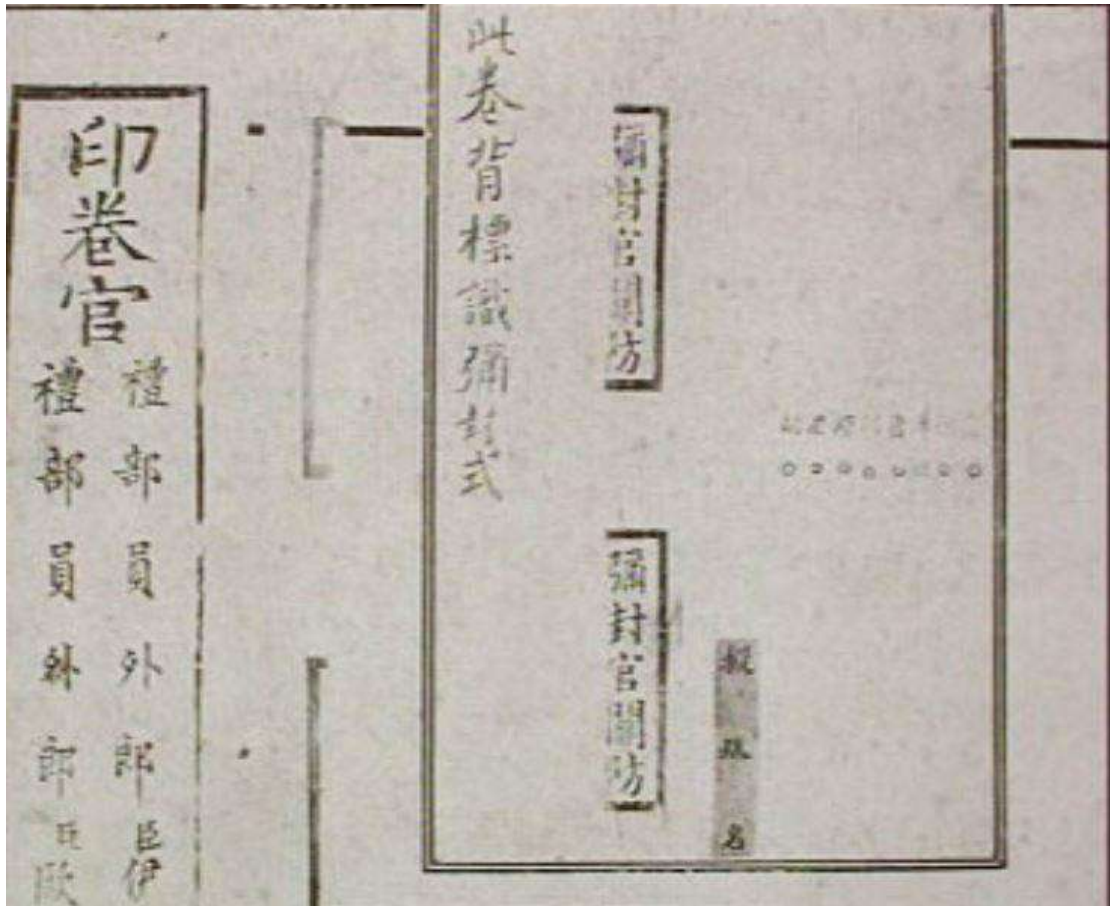 彌封官關防
彌封官關防
此卷背標識彌封式
印卷官
禮部員外郎臣伊
禮部員外郎臣歐